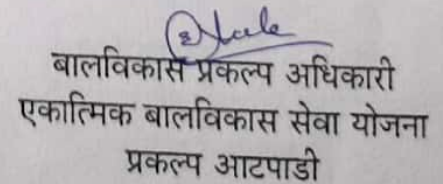 बालविकास प्रकल्प अधिकारी
एकात्मिक बालविकास सेवा योजना
प्रकल्प आटपाडी